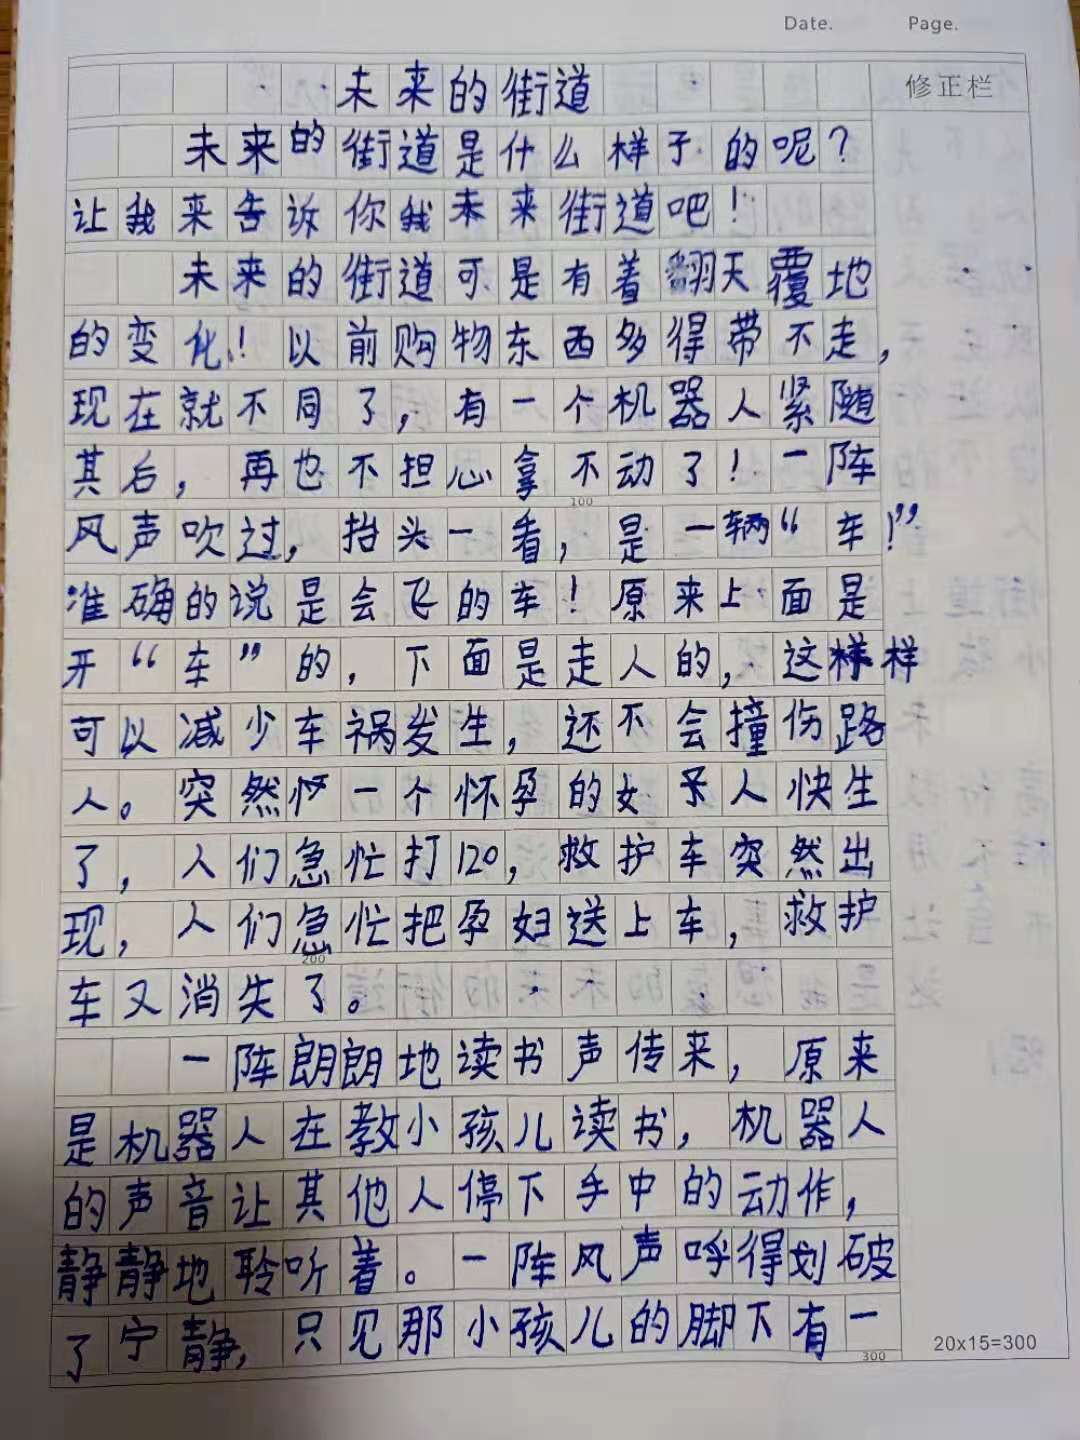 Date. Page.
未来的街道
修正栏
未来的街道是什么样子的呢?
让我来告诉你我未来街道吧!
未来的街道可是有着翻天覆地
的变化!以前购物东西多得带不走,
现在就不同了,有一个机器人紧随
其后,再也不担心拿不动了!一阵
100
风声吹过,抬头一看,是一辆“车!”
准确的说是会飞的车!原来上面是
开“车”的,下面是走人的,这样样
可以减少车祸发生,还不会撞伤路
人。突然一个怀孕的女人快生
了,人们急忙打120,救护车突然出
现,人们急忙把孕妇送上车,救护
200
车又消失了。
一阵朗朗地读书声传来,原来
是机器人在教小孩儿读书,机器人
的声音让其他人停下手中的动作,
静静地聆听着。一阵风声呼得划破
了宁静,只见那小孩儿的脚下有一
300
20x15=300